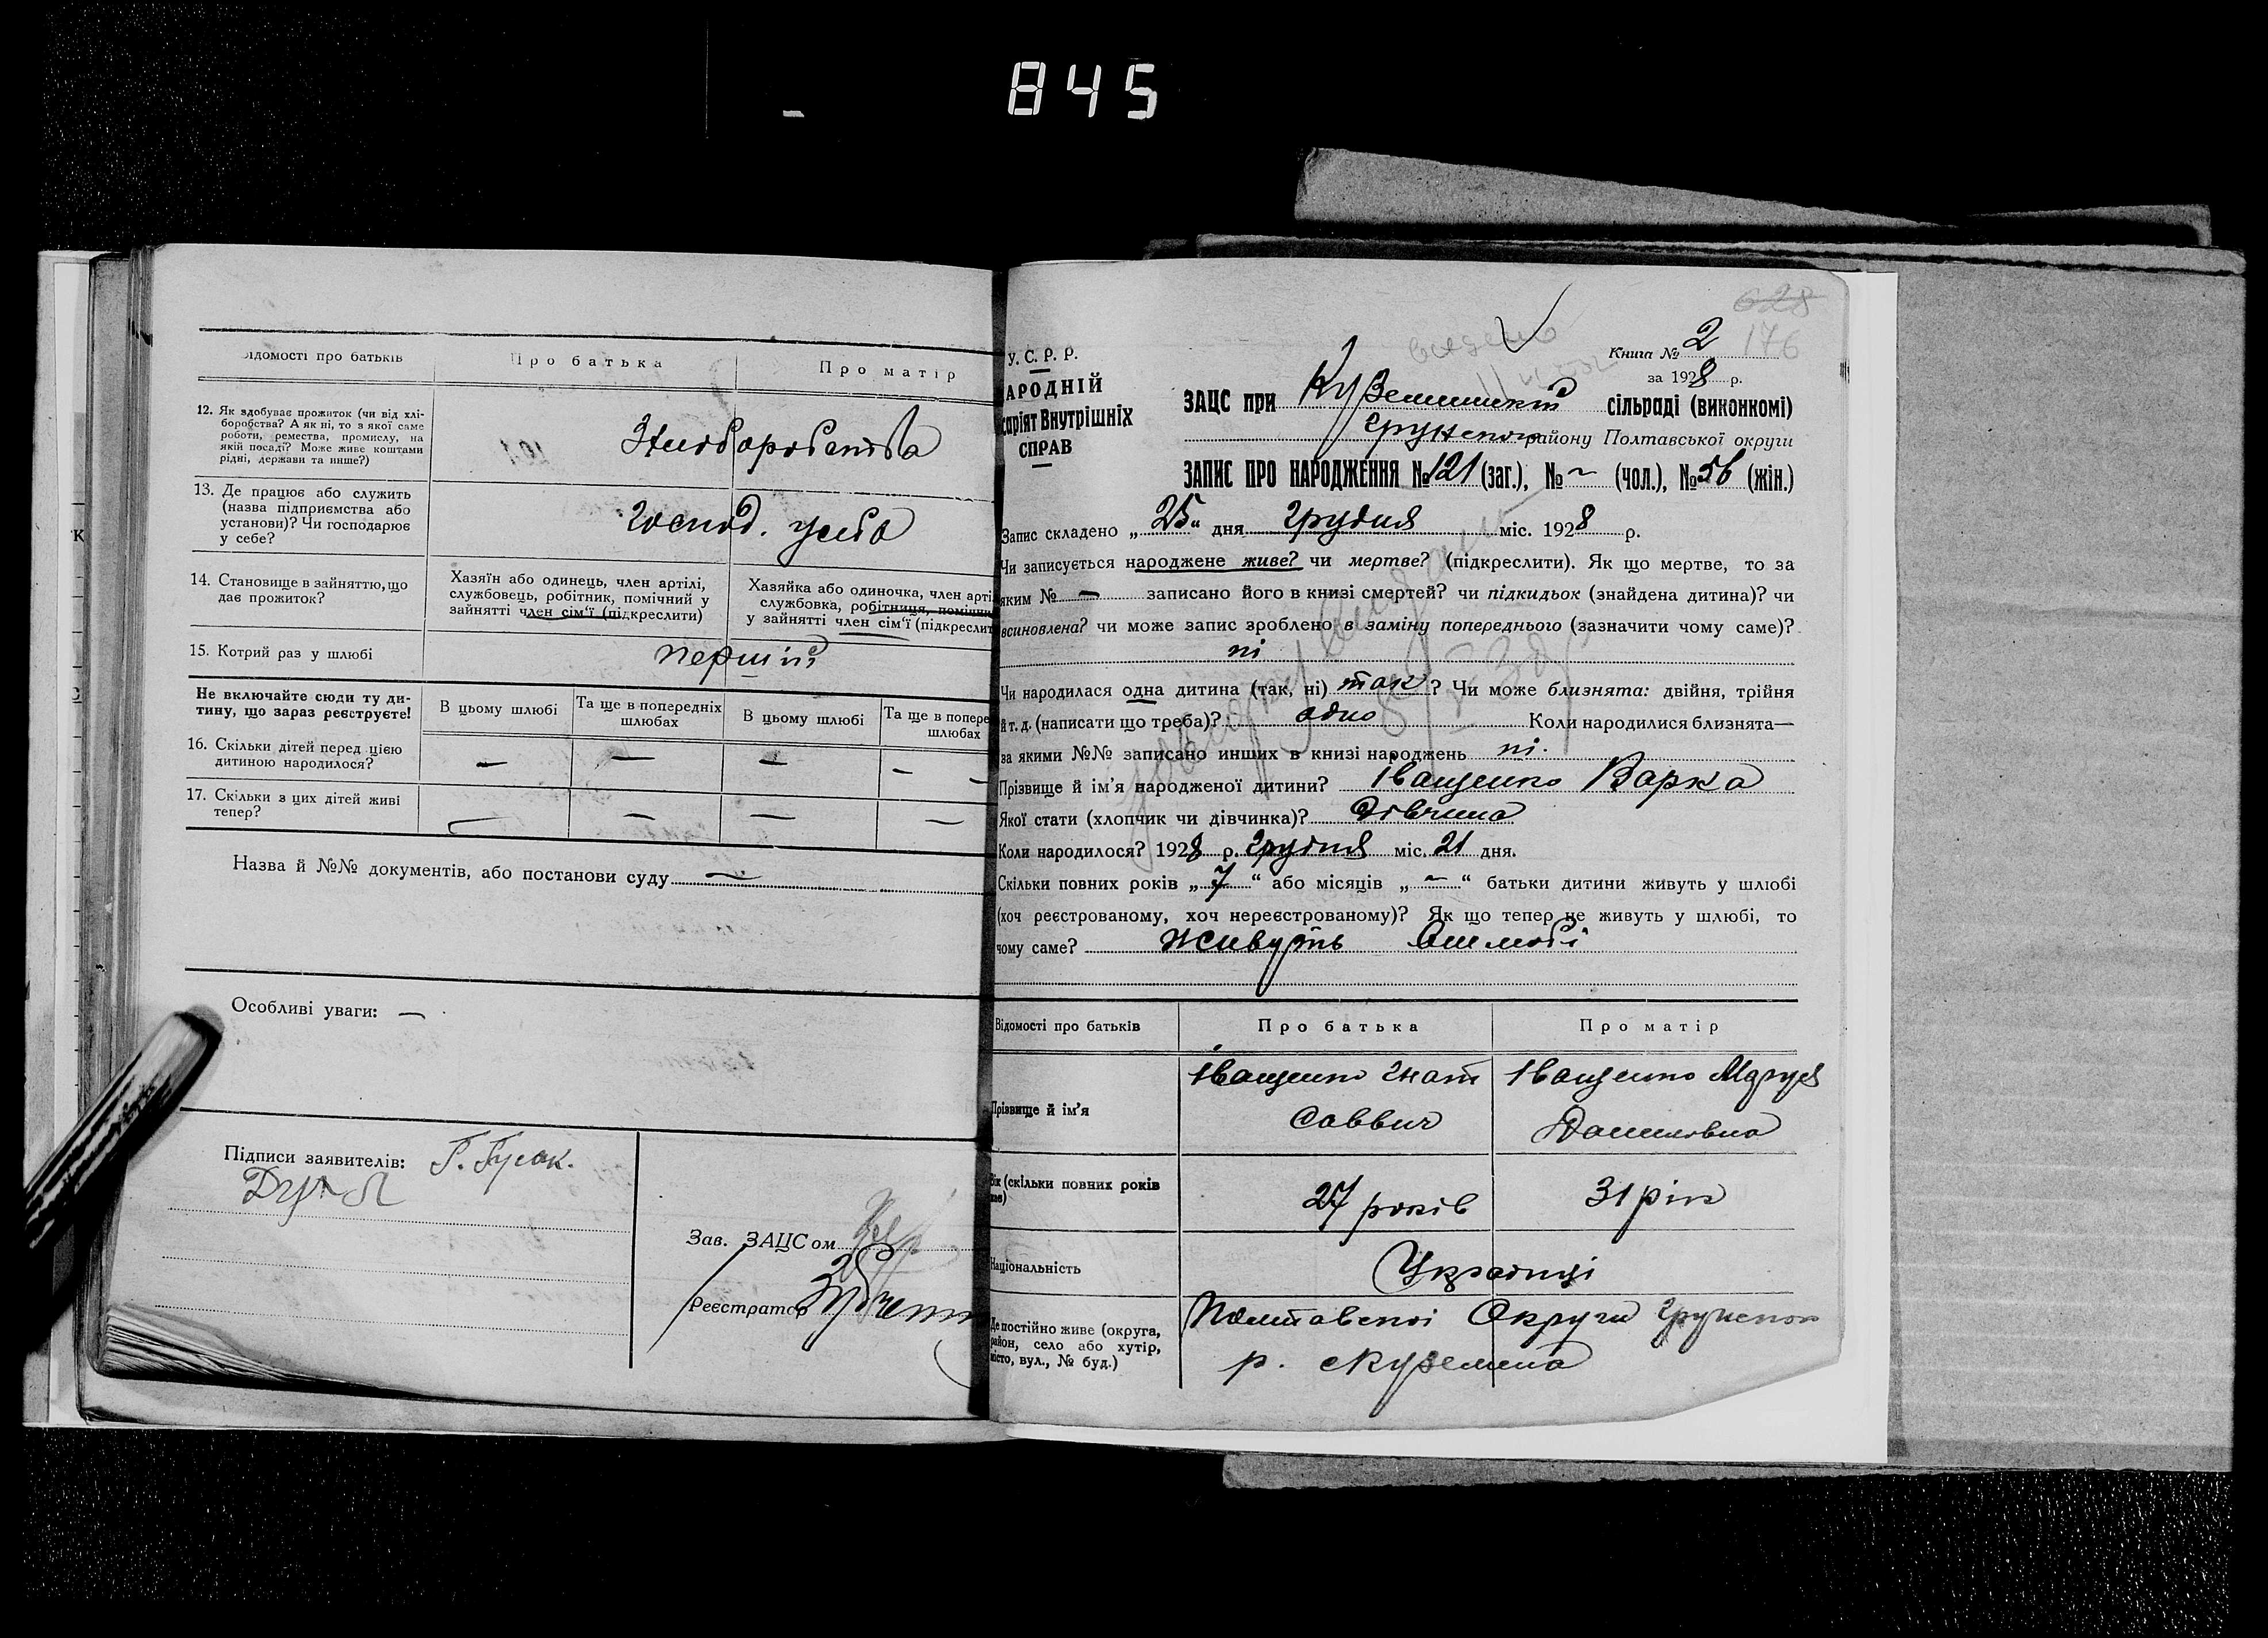 845
Відомості про батьків
Про батька
Про матір
12. Як здобуває прожиток (чи від хлі-
боробства? А як ні, то з якої саме
роботи, ремества, промислу, на
якій посаді? Може живе коштами
рідні, держави та инше?)
З хлоборобства
13. Де працює або служить
(назва підприємства або
установи)? Чи господарює
у себе?
Господ. у себа
14. Становище в зайняттю, що
дає прожиток?
Хазяїн або одинець, член артілі,
службовець, робітник, помічний у
зайнятті член сім'ї (підкреслити)
Хазяйка або одиночка, член арті
службовка, робітниця, помічни
у зайнятті член сім'ї (підкреслит
15. Котрий раз у шлюбі
перший
Не включайте сюди ту ди-
тину, що зараз реєструєте!
В цьому шлюбі
Та ще в попередніх
шлюбах
В цьому шлюбі
Та ще в попере
шлюбах
16. Скільки дітей перед цією
дитиною народилося?
— — — —
17. Скільки з цих дітей живі
тепер?
— — — —
Назва й №№ документів, або постанови суду —
Особливі уваги: —
Підписи заявителів: Г. Гусак.
Зав. ЗАЦСом
Реєстратор
628
176
У. С. Р. Р.
НАРОДНІЙ
саріят Внутрішніх
СПРАВ
Книга № 2
за 1928 р.
ЗАЦС при Куземинскій сільраді (виконкомі)
Грунского району Полтавської округи
ЗАПИС ПРО НАРОДЖЕННЯ № 121 (заг.), № ~ (чол.), № 56 (жін.)
Запис складено „25" дня грудня міс. 1928 р.
Чи записується народжене живе? чи мертве? (підкреслити). Як що мертве, то за
яким № — записано його в книзі смертей? чи підкидьок (знайдена дитина)? чи
всиновлена? чи може запис зроблено в заміну попереднього (зазначити чому саме)?
ні
Чи народилася одна дитина (так, ні) так? Чи може близнята: двійня, трійня
й т. д. (написати що треба)? одно Коли народилися близнята—
за якими №№ записано инших в книзі народжень ні.
Прізвище й ім'я народженої дитини? Іващенко Варка
Якої стати (хлопчик чи дівчинка)? Дівчина
Коли народилося? 1928 р. грудня міс. 21 дня.
Скільки повних років „7" або місяців „~" батьки дитини живуть у шлюбі
(хоч реєстрованому, хоч нереєстрованому)? Як що тепер не живуть у шлюбі, то
чому саме? Живуть Вшлюбі
Відомості про батьків
Про батька
Про матір
Прізвище й ім'я
Іващенко Гнат
Саввич
Іващенко Маруся
Даниловна
Вік (скільки повних років
має)
27 років
31 рік
Національність
Українці
Де постійно живе (округа,
район, село або хутір,
місто, вул., № буд.)
Полтавскої Округи Грунског
р. с Куземина